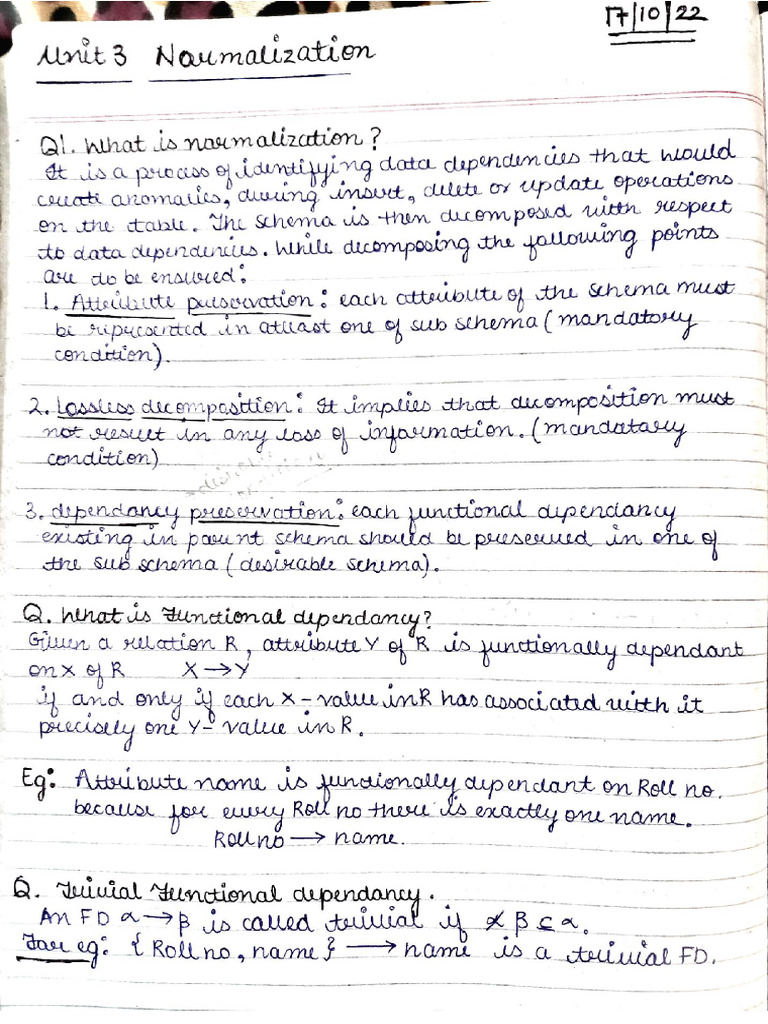 17/10/22
Unit 3 Normalization
Q1. What is normalization?
It is a process of identifying data dependencies that would
create anomalies, during insert, delete or update operations
on the table. The schema is then decomposed with respect
to data dependencies. While decomposing the following points
are to be ensured:
1. Attribute preservation: each attribute of the schema must
be represented in atleast one of sub schema (mandatory
condition).
2. Lossless decomposition: It implies that decomposition must
not result in any loss of information. (mandatary
condition)
3. dependancy preservation: each functional dependancy
existing in parent schema should be preserved in one of
the sub schema (desirable schema).
Q. What is Functional dependancy?
Given a relation R, attribute Y of R is functionally dependant
on X of R X → Y
if and only if each X-value in R has associated with it
precisely one Y-value in R.
Eg: Attribute name is functionally dependant on Roll no.
because for every Roll no there is exactly one name.
Roll no → name.
Q. Trivial Functional dependancy.
An FD α → β is called trivial if β ⊆ α.
For eg: {Roll no, name} → name is a trivial FD.